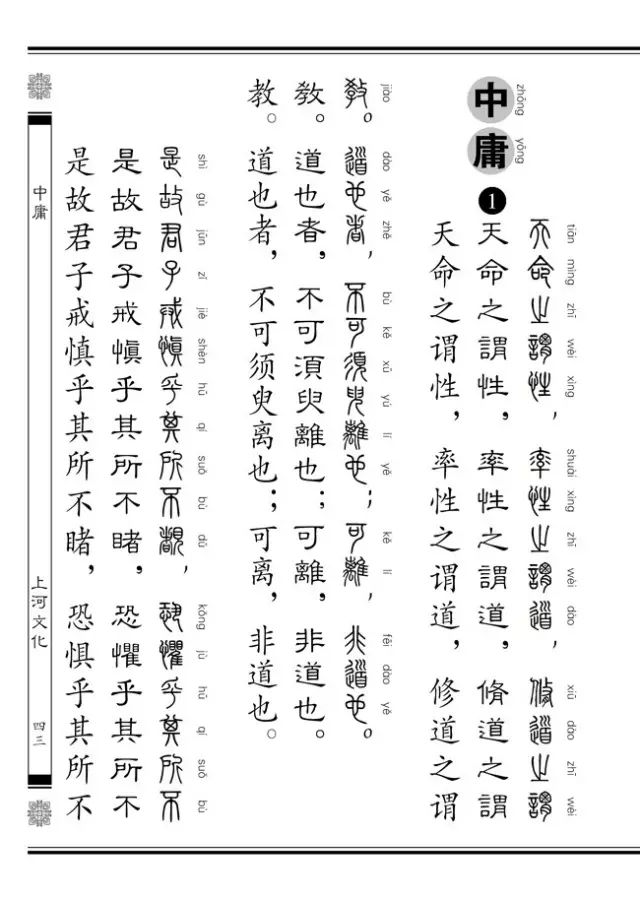 zhōng yōng
中庸
❶
tiān mìng zhī wèi xìng shuài xìng zhī wèi dào xiū dào zhī wèi
天命之謂性，率性之謂道，修道之謂
天命之謂性，率性之謂道，脩道之謂
天命之谓性，率性之谓道，修道之谓
jiào dào yě zhě bù kě xū yú lí yě kě lí fēi dào yě
敎。道也者，不可須臾離也；可離，非道也。
敎。道也者，不可須臾離也；可離，非道也。
教。道也者，不可须臾离也；可离，非道也。
shì gù jūn zǐ jiè shèn hū qí suǒ bù dǔ kǒng jù hū qí suǒ bù
是故君子戒愼乎其所不覩，恐懼乎其所不
是故君子戒愼乎其所不睹，恐懼乎其所不
是故君子戒慎乎其所不睹，恐惧乎其所不
中庸
上河文化
四三